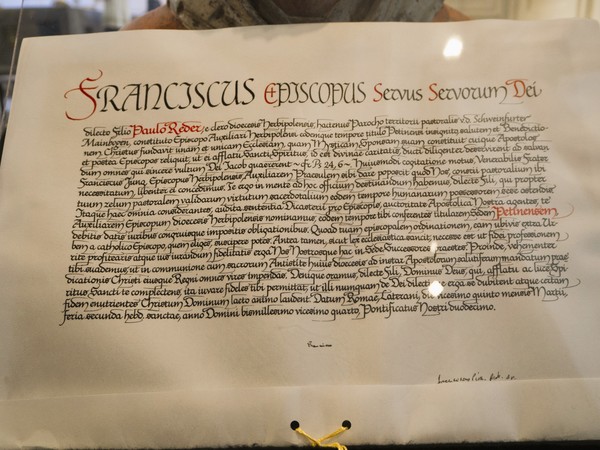 FRANCISCUS EPISCOPUS Servus Servorum Dei
dilecto Filio Paulo Reder, e clero dioecesis Herbipolensis, hactenus Parocho territorii pastoralis v.d. Schweinfurter
Mainbogen, constituto Episcopo Auxiliari Herbipolensi eodemque tempore titulo Petinensi insignito, salutem et Benedictio-
nem. Christus fundavit unam et unicam Ecclesiam, quam Mysticam Sponsam suam constituit atque Apostolos
et postea Episcopos reliquit, ut ei afflatu Sancti Spiritus, id est divinae caritatis, duti diligenter deservirent ad salven-
dum omnes qui sincere vultum Dei Jacob quaererent - cfr. Ps 24, 6 -. Huiusmodi cogitatione motus, Venerabilis Frater
Franciscus Jung, Episcopus Herbipolensis, Auxiliarem Praesulem sibi dari poposcit quod Nos, consulti pastoralium ibi
necessitatum, libenter ei concedimus. Te ergo in mente ad hoc officium destinandum habemus, dilecte Fili, qui propter
tuum zelum pastoralem validarum virtutum sacerdotalium eodem tempore humanarum possessorem bene ostendis.
Itaque haec omnia considerantes, audita sententia Dicasterii pro Episcopis, auctoritate Apostolica Nostra agentes, te
Auxiliarem Episcopum dioecesis Herbipolensis nominamus, eodem tempore tibi conferentes titularem Sedem Petinensem
debitis datis iuribus congruisque impositis obligationibus. Quod tuam episcopalem ordinationem, eam ubivis extra Ur-
bem a catholico Episcopo, quem eliges, suscipere potes. Antea tamen, sicut lex ecclesiastica sancit, necesse est ut fidei professionem
rite profitearis atque ius iurandum fidelitatis erga Nos Nostrosque hac in Sede Successores praestes. Proinde, vehementer
tibi suademus, ut in communione cum sacrorum Antistite huius dioecesis ad instar Apostolorum salutiferum mandatum prae-
dicationis Christi eiusque Regni omnes vires impendas. Denique oramus, dilecte Fili, Dominus Deus, qui, afflatu ac luce Spi-
ritus Sancti te complectens, ita iuvare fideles tibi permittat, ut illi numquam de Dei dilectione erga se dubitent atque certam
fidem enutrientes Christum Dominum laeto animo laudent. Datum Romae, Laterani, die vicesimo quinto mensis Martii,
feria secunda hebd. sanctae, anno Domini bismillesimo vicesimo quarto, Pontificatus Nostri duodecimo.
Franciscus